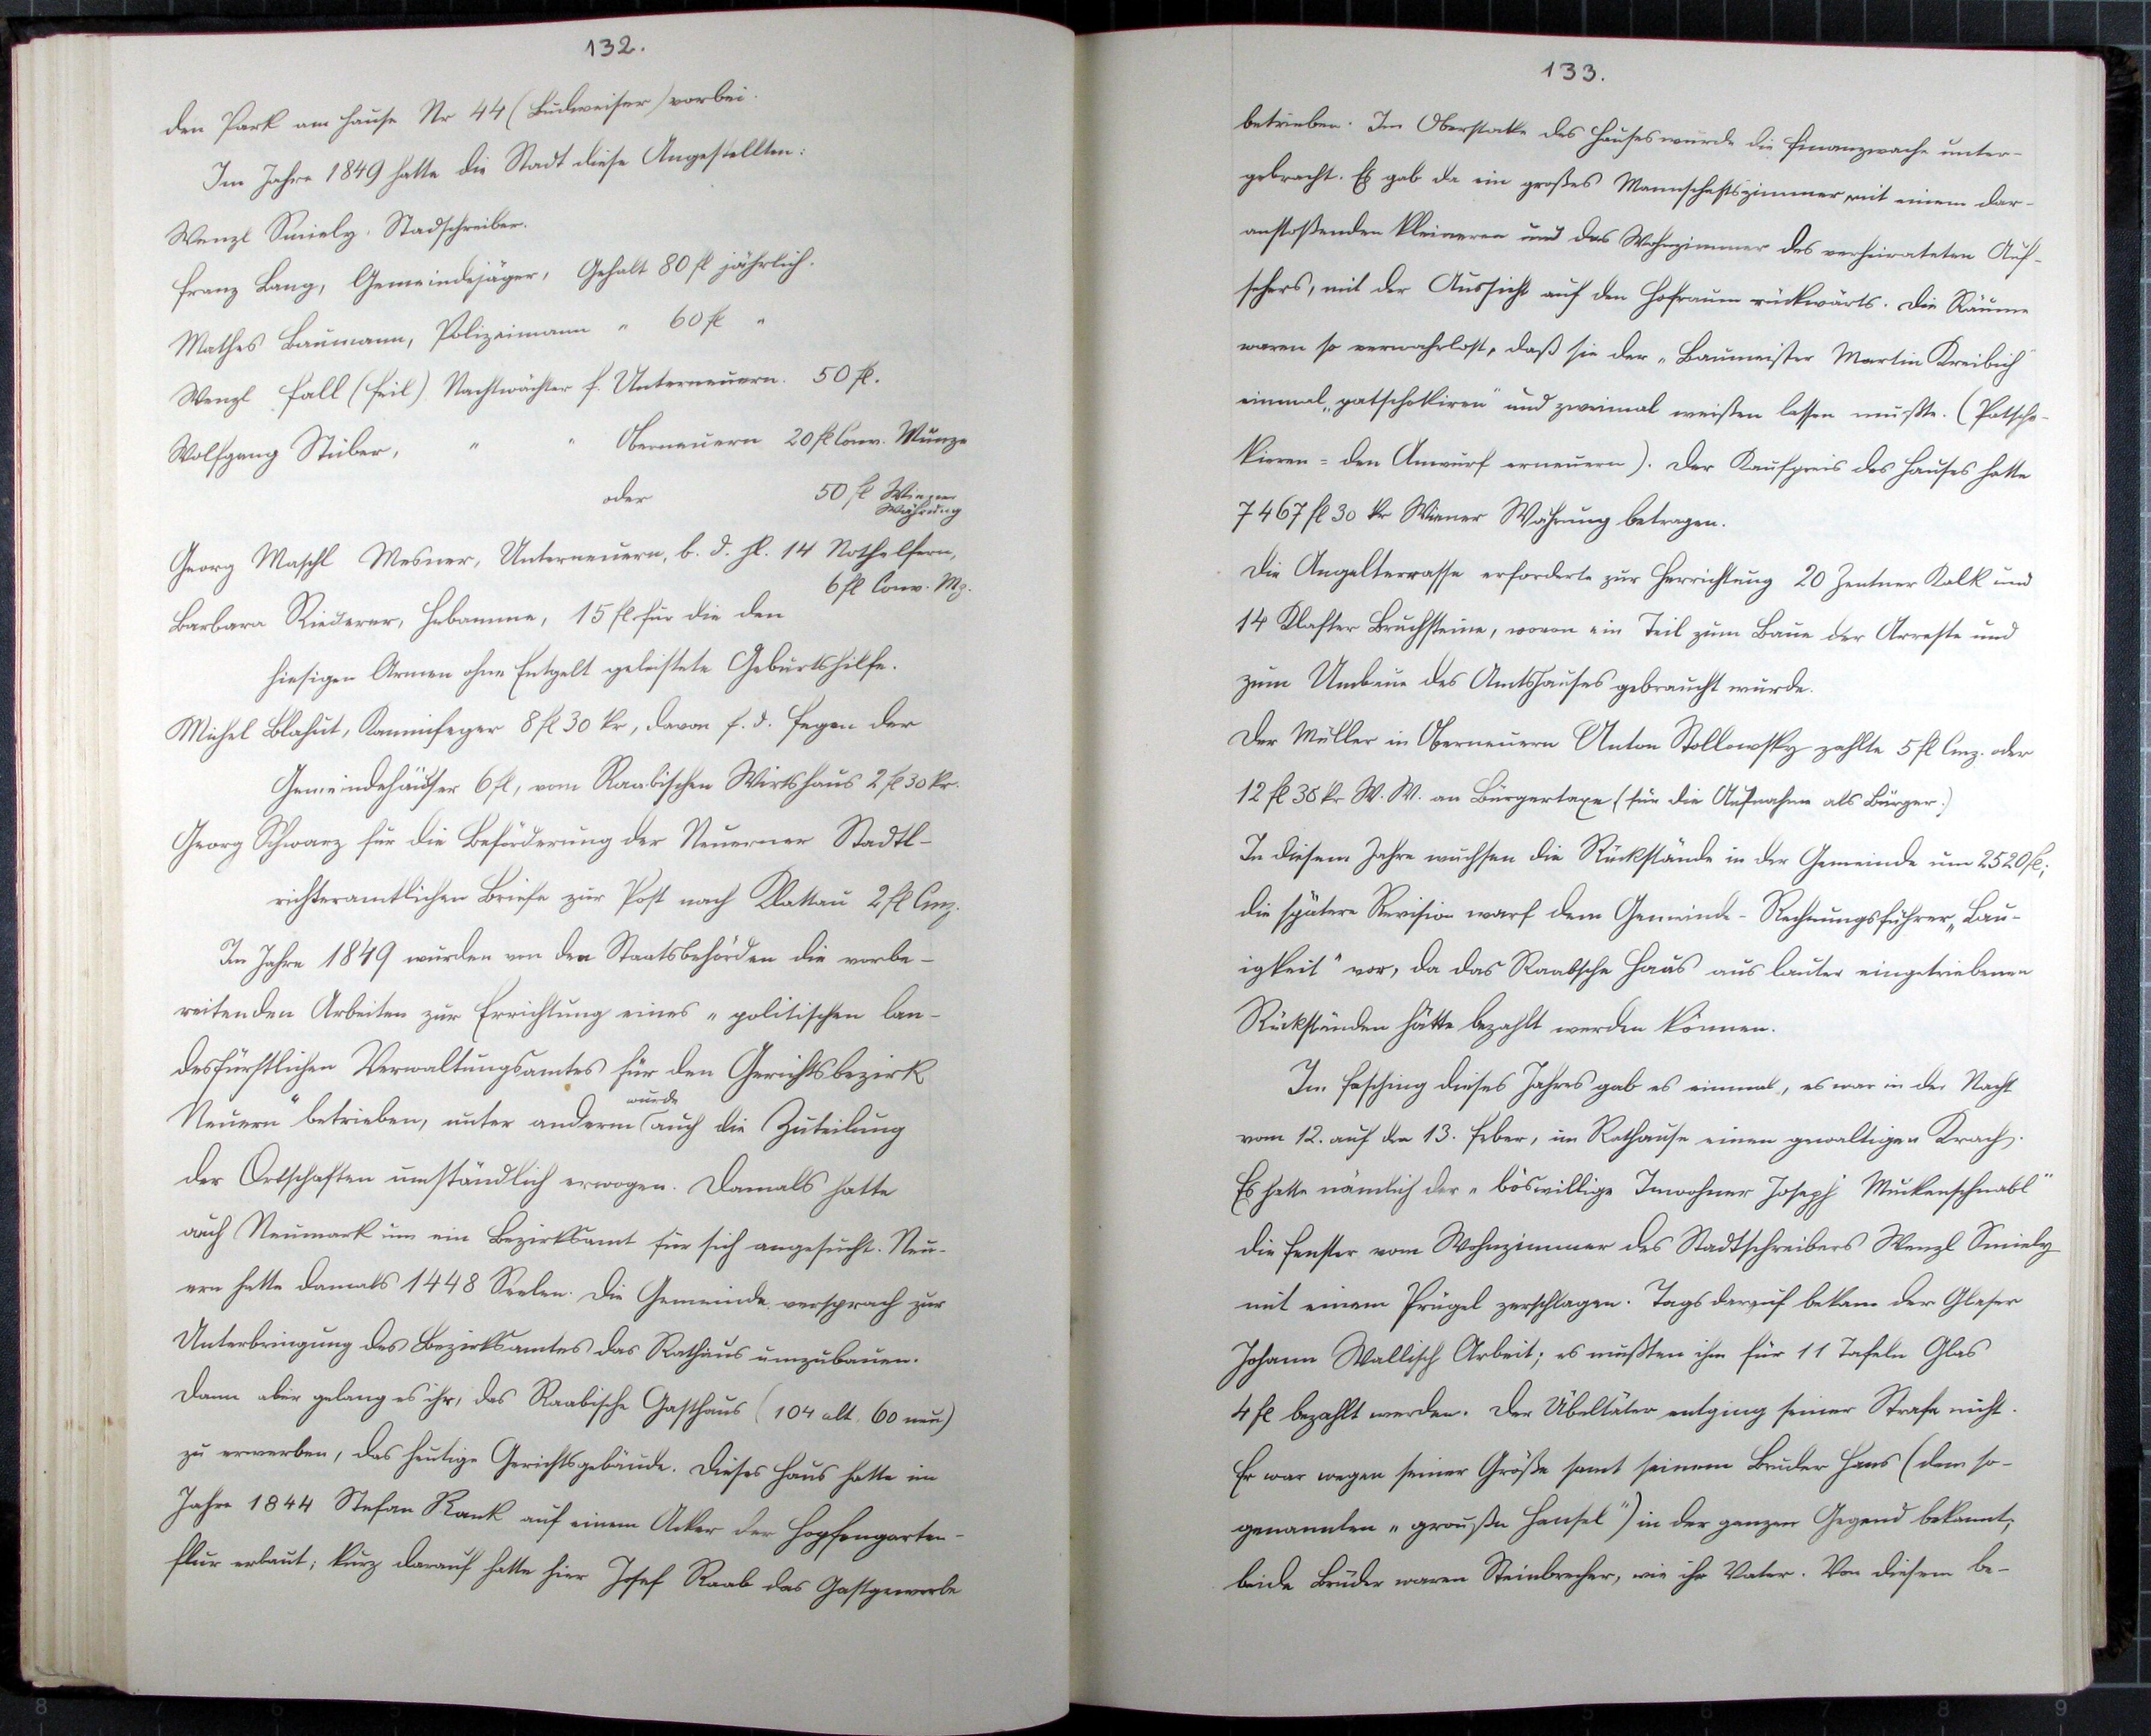 132.
den Park am Hause Nr 44 (Budweiser) vorbei.
Im Jahre 1849 hatte die Stadt diese Angestellten:
Wenzl Smiely, Stadschreiber.
Franz Lang, Gemeindejäger, Gehalt 80 fl jährlich.
Mathes Baumann, Polizeimann " 60 fl "
Wenzl Fall (Feil) Nachtwächter f. Unterneuern. 50 fl.
Wolfgang Stuber, " " Oberneuern 20 fl Conv. Münze
oder 50 fl Wiener
Währung
Georg Maschl Mesner, Unterneuern, b. d. hl. 14 Nothelfern,
6 fl Conv. Mz.
Barbara Riederer, Hebamme, 15 fl für die den
hiesigen Armen ohne Entgelt geleistete Geburtshilfe.
Michel Blahut, Kaminfeger 8 fl 30 kr, davon f. d. Fegen der
Gemeindehäuser 6 fl, vom Raabischen Wirtshaus 2 fl 30 kr.
Georg Schwarz für die Beförderung der Neuerner Stadtl-
richteramtlichen Briefe zur Post nach Klattau 2 fl Cmz.
Im Jahre 1849 wurden von den Staatsbehörden die vorbe-
reitenden Arbeiten zur Errichtung eines "politischen lan-
desfürstlichen Verwaltungsamtes für den Gerichtsbezirk
Neuern" betrieben, unter anderm wurde auch die Zuteilung
der Ortschaften umständlich erwogen. Damals hatte
auch Neumark um ein Bezirksamt für sich angesucht. Neu-
ern hatte damals 1448 Seelen. Die Gemeinde versprach zur
Unterbringung des Bezirksamtes das Rathaus umzubauen.
Dann aber gelang es ihr, das Raabische Gasthaus (104 alt, 60 neu)
zu erwerben, das heutige Gerichtsgebäude. Dieses Haus hatte im
Jahre 1844 Stefan Rank auf einem Acker der Hopfengarten-
flur erbaut; kurz darauf hatte hier Josef Raab das Gastgewerbe
133.
betrieben. Im Oberstocke des Hauses wurde die Finanzwache unter-
gebracht. Es gab da ein großes Mannschaftszimmer, mit einem dar-
anstoßenden kleineren und das Wohnzimmer des verheirateten Auf-
sehers, mit der Aussicht auf den Hofraum rückwärts. Die Räume
waren so verwahrlost, daß sie der "Baumeister Martin Kreibich"
einmal "patschokiren" und zweimal weißen lassen mußte. (Patscho-
kieren = den Anwurf erneuern). Der Kaufpreis des Hauses hatte
7467 fl 30 kr Wiener Währung betragen.
Die Angelterrasse erforderte zur Herrichtung 20 Zentner Kalk und
14 Klafter Bruchsteine, wovon ein Teil zum Baue der Arreste und
zum Umbaue des Amtshauses gebraucht wurde.
Der Müller in Oberneuern Anton Stollowsky zahlte 5 fl Cmz. oder
12 fl 30 kr W. W. an Bürgertaxe (für die Aufnahme als Bürger.)
In diesem Jahre wuchsen die Rückstände in der Gemeinde um 2520 fl;
die spätere Revision warf dem Gemeinde-Rechnungsführer "Lau-
igkeit" vor, da das Raabsche Haus aus lauter eingetriebenen
Rückständen hätte bezahlt werden können.
Im Fasching dieses Jahres gab es einmal, es war in der Nacht
vom 12. auf den 13. Feber, im Rathause einen gewaltigen Krach.
Es hatte nämlich der "böswillige Inwohner Joseph Muckenschnabl"
die Fenster vom Wohnzimmer des Stadtschreibers Wenzl Smiely
mit einem Prügel zerschlagen. Tags darauf bekam der Glaser
Johann Wallisch Arbeit; es mußten ihm für 11 Tafeln Glas
4 fl bezahlt werden. Der Übeltäter entging seiner Strafe nicht.
Er war wegen seiner Größe samt seinem Bruder Hans (dem so-
genannten "großn Hansel") in der ganzen Gegend bekannt;
beide Brüder waren Steinbrecher, wie ihr Vater. Von diesem be-